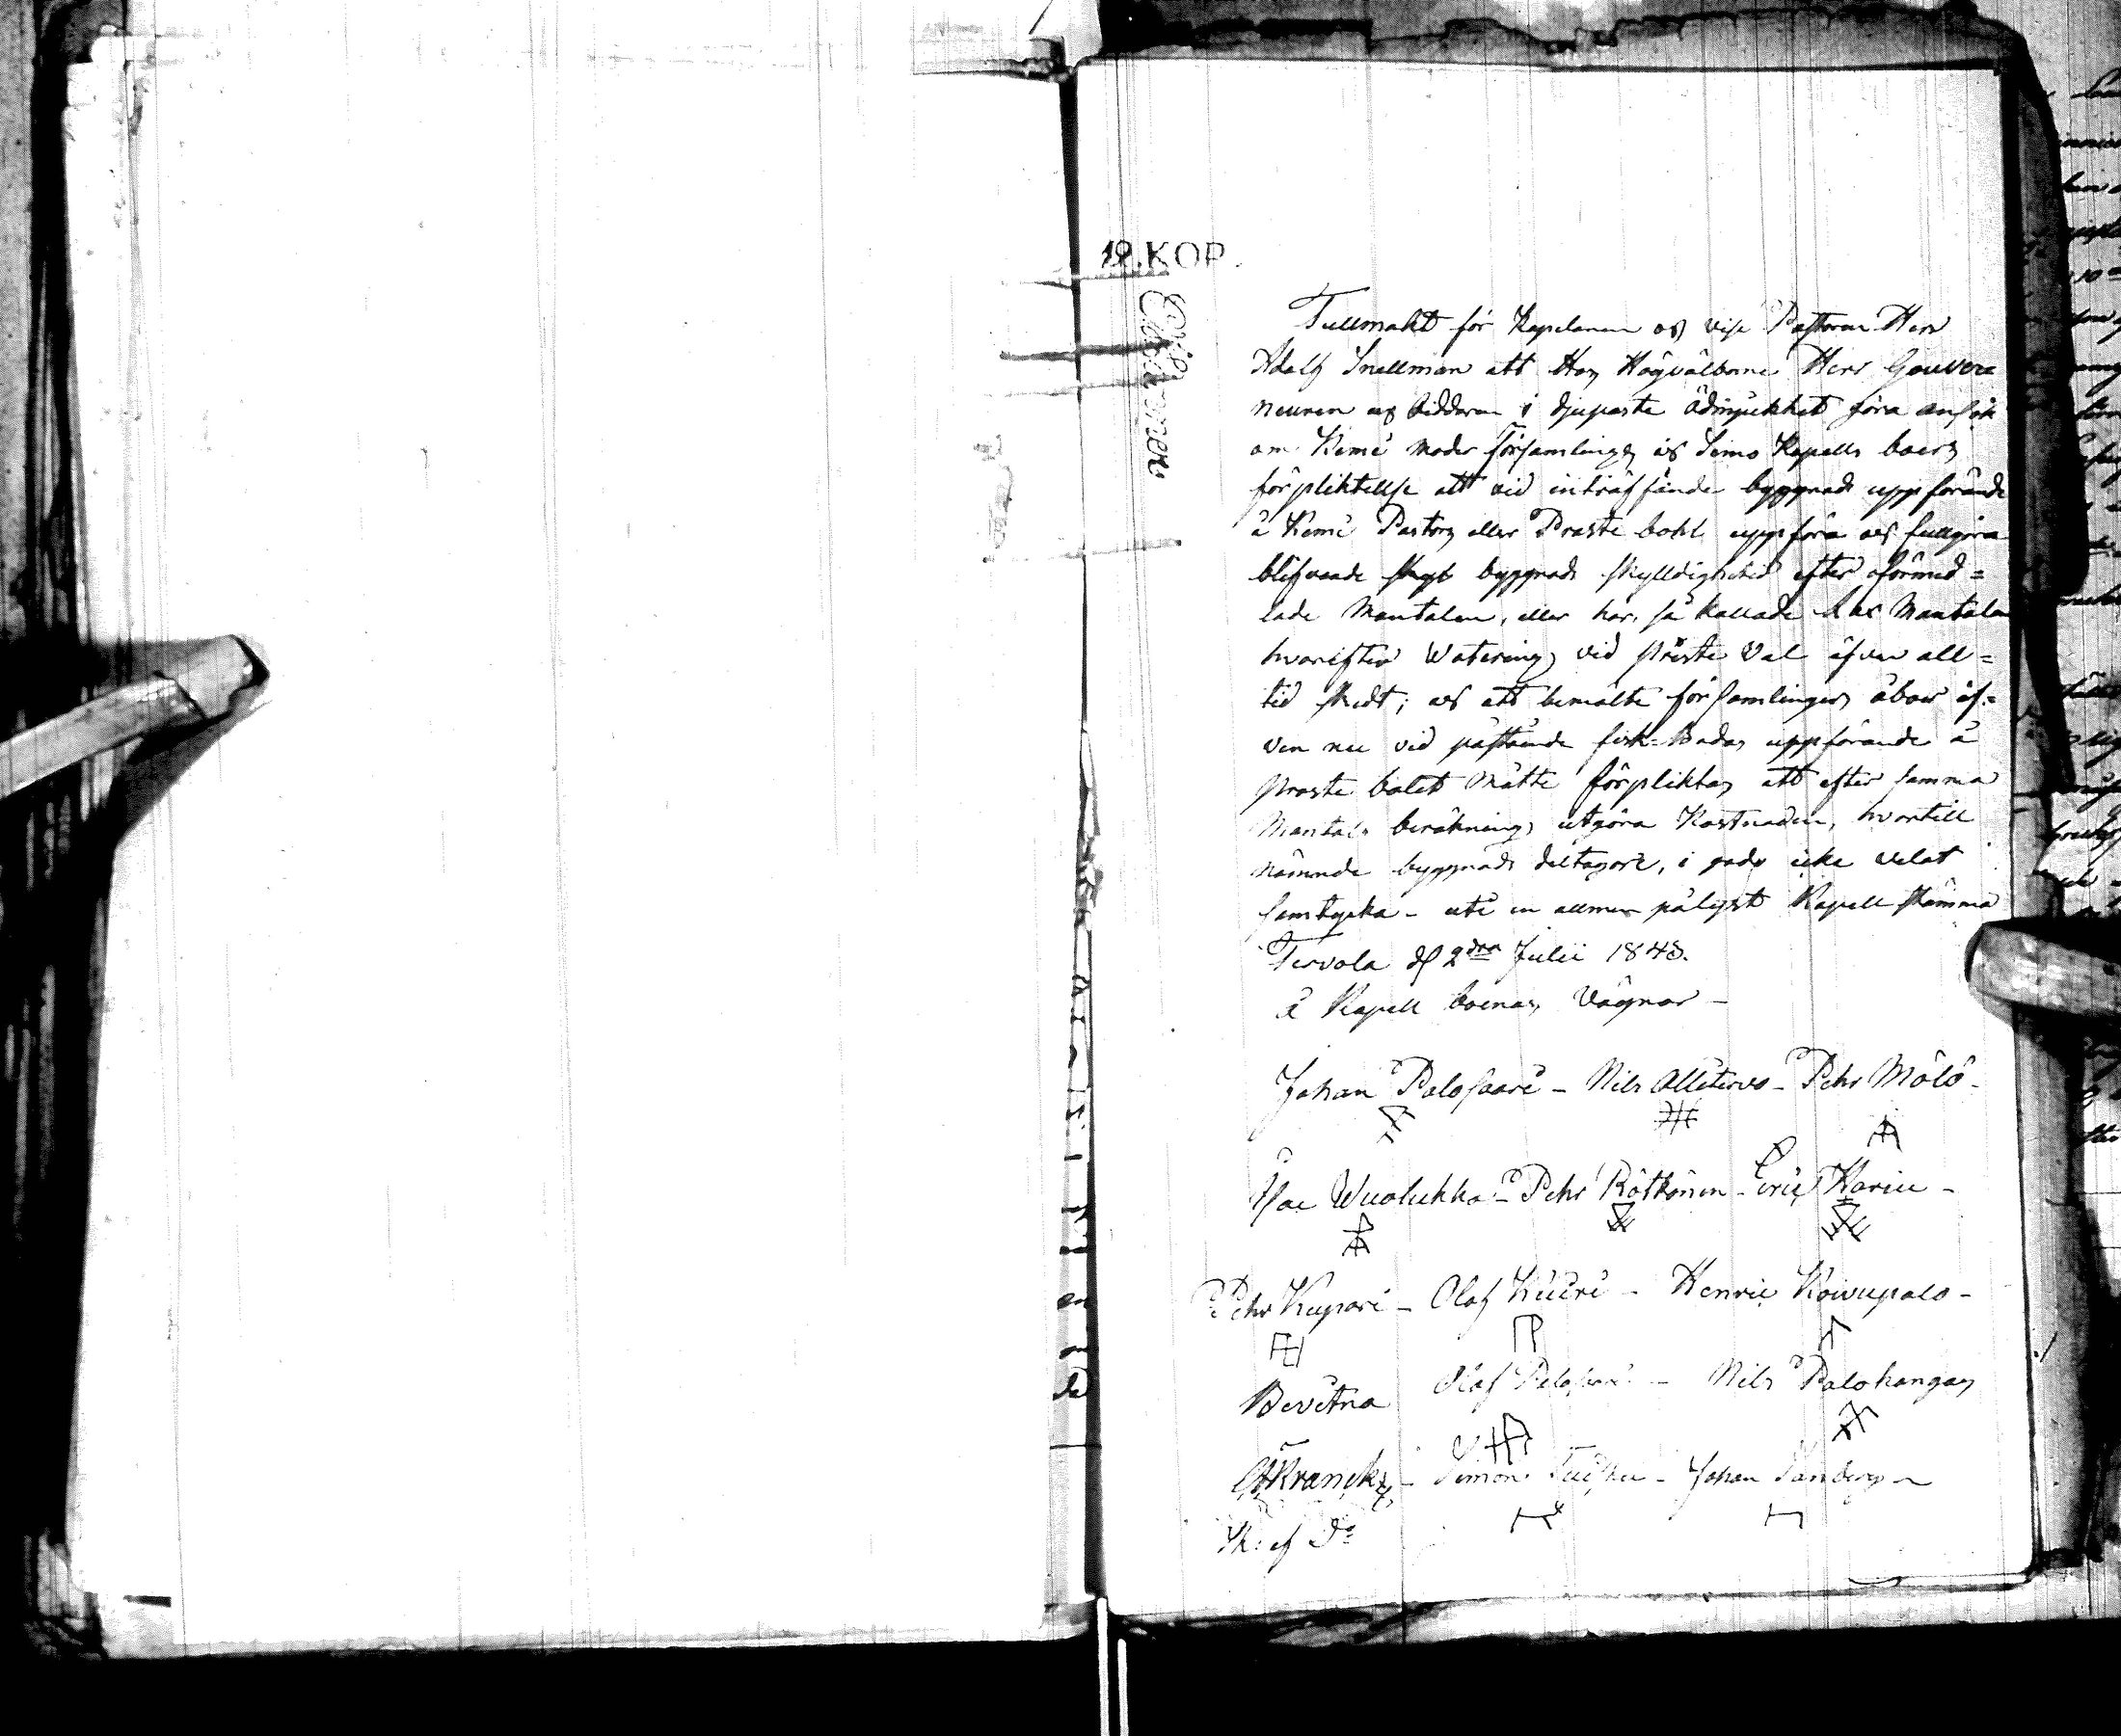 12. KOP.
Fullmakt för Kapelanen och vise Pastoren Herr
Adolf Snellman att Hos Högvälborne Herr Gouver=
neuren och Riddaren i djupaste ödmjukhet föra ansök
om Kemi moder församlings och Simo Kapells boers
förpliktellse att vid inträffande byggnads uppförande
å Kemi Pastors eller Præste bohl uppföra och fullgöra
blifvande byggnads skylldighetid efter oförmed=
lade Mantalen, eller här, så kallade Mantalen
hvarefter Watering vid Präste Val äfven all=
tid skedt; och att bemälte församlingers åboer äf=
ven nu vid påstående fisk-Bodas uppförande å
Præste bolet måtte förpliktas att efter samma
Mantals beräkning utgöra Kostnaden, hvartill
nämnde byggnads deltagare, i godo icke velat
samtycka - uti en allmen pålyst Kapell stämma
Tervola d. 2dra Julii 1843.
å Kapell boenas Vägnar -
Johan Palosaari - Nils Alletervo - Pehr Mölö -
Isac Wuolukka - Pehr Rötkönen - Eric Harju -
Pehr Kupari - Olof Kuuri - Henric Koivupalo -
Bevitna Olof Palosaari - Nils Palokangas
AFranck - Simon - Johan Sandberg -